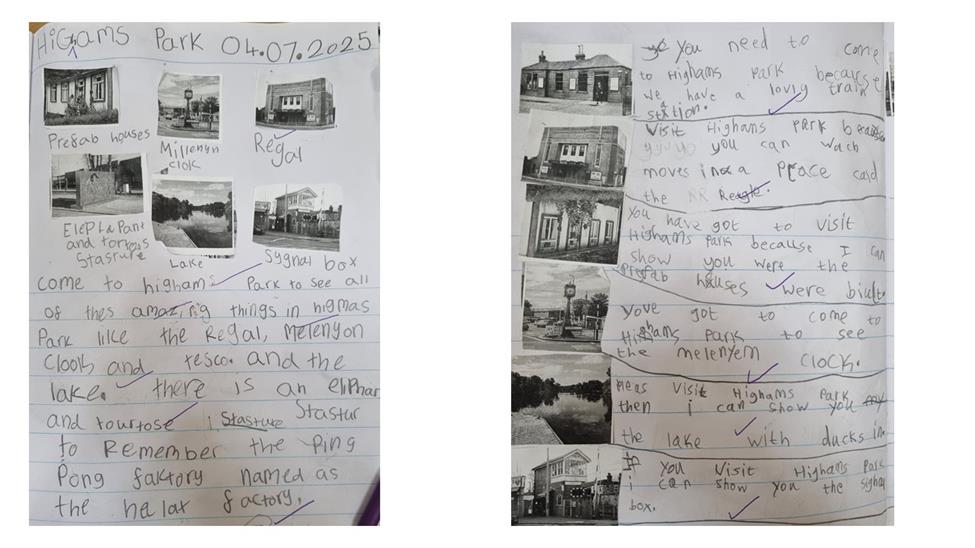 Highams Park 04.07.2025
Prefab houses
Millenyn
clok
Regal
Elephant
and tortois
Stasture
Lake
Sygnal box
come to highams Park to see all
of thes amazing things in higmas
Park like the Regal, Melenyon
Clook and tesco. and the
lake. there is an eliphan
and tourtose Stasture Stastur
to Remember the Ping
Pong faktory named as
the helax factory.
You need to come
to Highams Park because
we have a lovly train
station.
Visit Highans Park because
you can wach
moves in a Place cald
the Reagle.
You have got to visit
Highams Park because I can
show you were the
Prefab houses were biult.
Yove got to come to
Highams Park to see
the melenyem Clock.
Pleas Visit Highams Park
then i can show you
the lake with ducks in.
If you visit Highams Park
i can show you the signal
box.